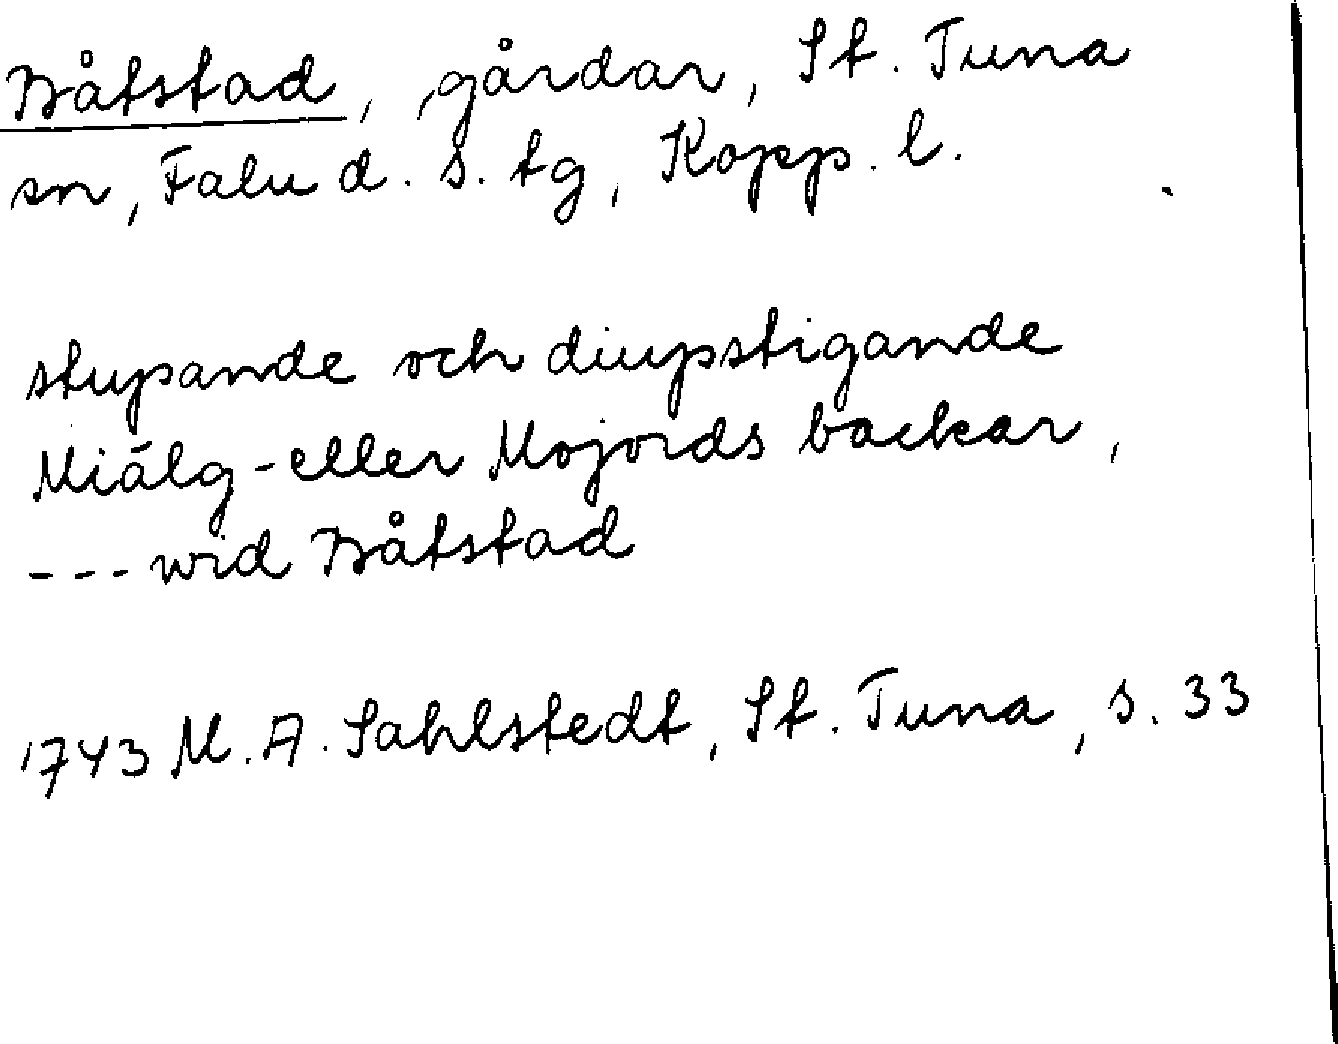 Båtstad, gårdar, St. Tuna
sn, Falu d. s. tg, Kopp. l.
stupande och diupstigande
Miälg-eller Mojords backar,
--- wid Båtstad
1743 M. A. Sahlstedt, St. Tuna, s. 33